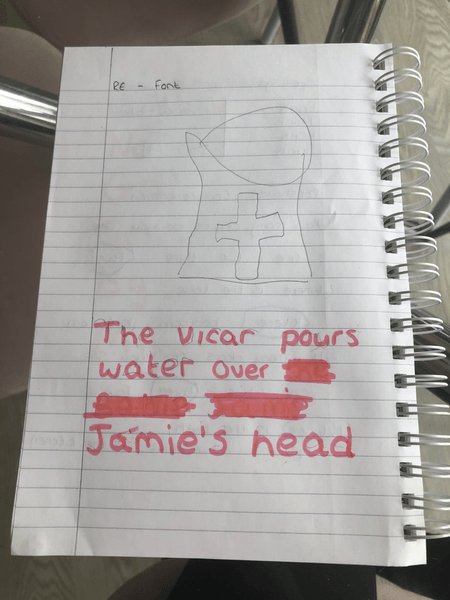 RE - Font
The vicar pours
water over
Jamie's head